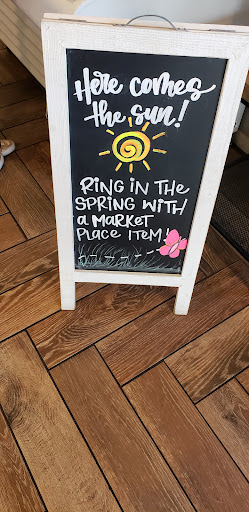 Here comes
the sun!
RING IN THE
SPRING WITH
a MARKET
PLACE ITEM!